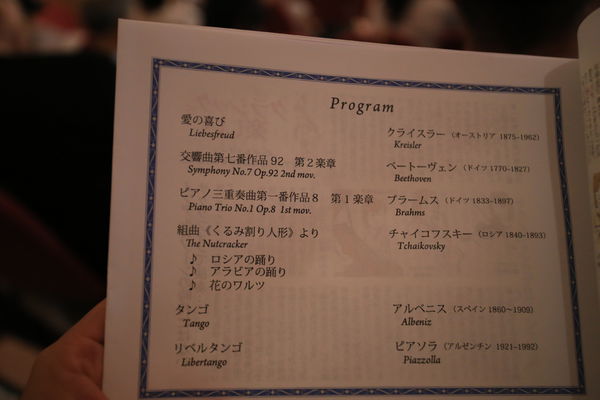 Program
愛の喜び クライスラー (オーストリア 1875-1962)
Liebesfreud Kreisler
交響曲第七番作品 92 第２楽章 ベートーヴェン (ドイツ 1770-1827)
Symphony No.7 Op.92 2nd mov. Beethoven
ピアノ三重奏曲第一番作品８ 第１楽章 ブラームス (ドイツ 1833-1897)
Piano Trio No.1 Op.8 1st mov. Brahms
組曲《くるみ割り人形》より チャイコフスキー (ロシア 1840-1893)
The Nutcracker Tchaikovsky
♪ ロシアの踊り
♪ アラビアの踊り
♪ 花のワルツ
タンゴ アルベニス (スペイン 1860〜1909)
Tango Albeniz
リベルタンゴ ピアソラ (アルゼンチン 1921-1992)
Libertango Piazzolla